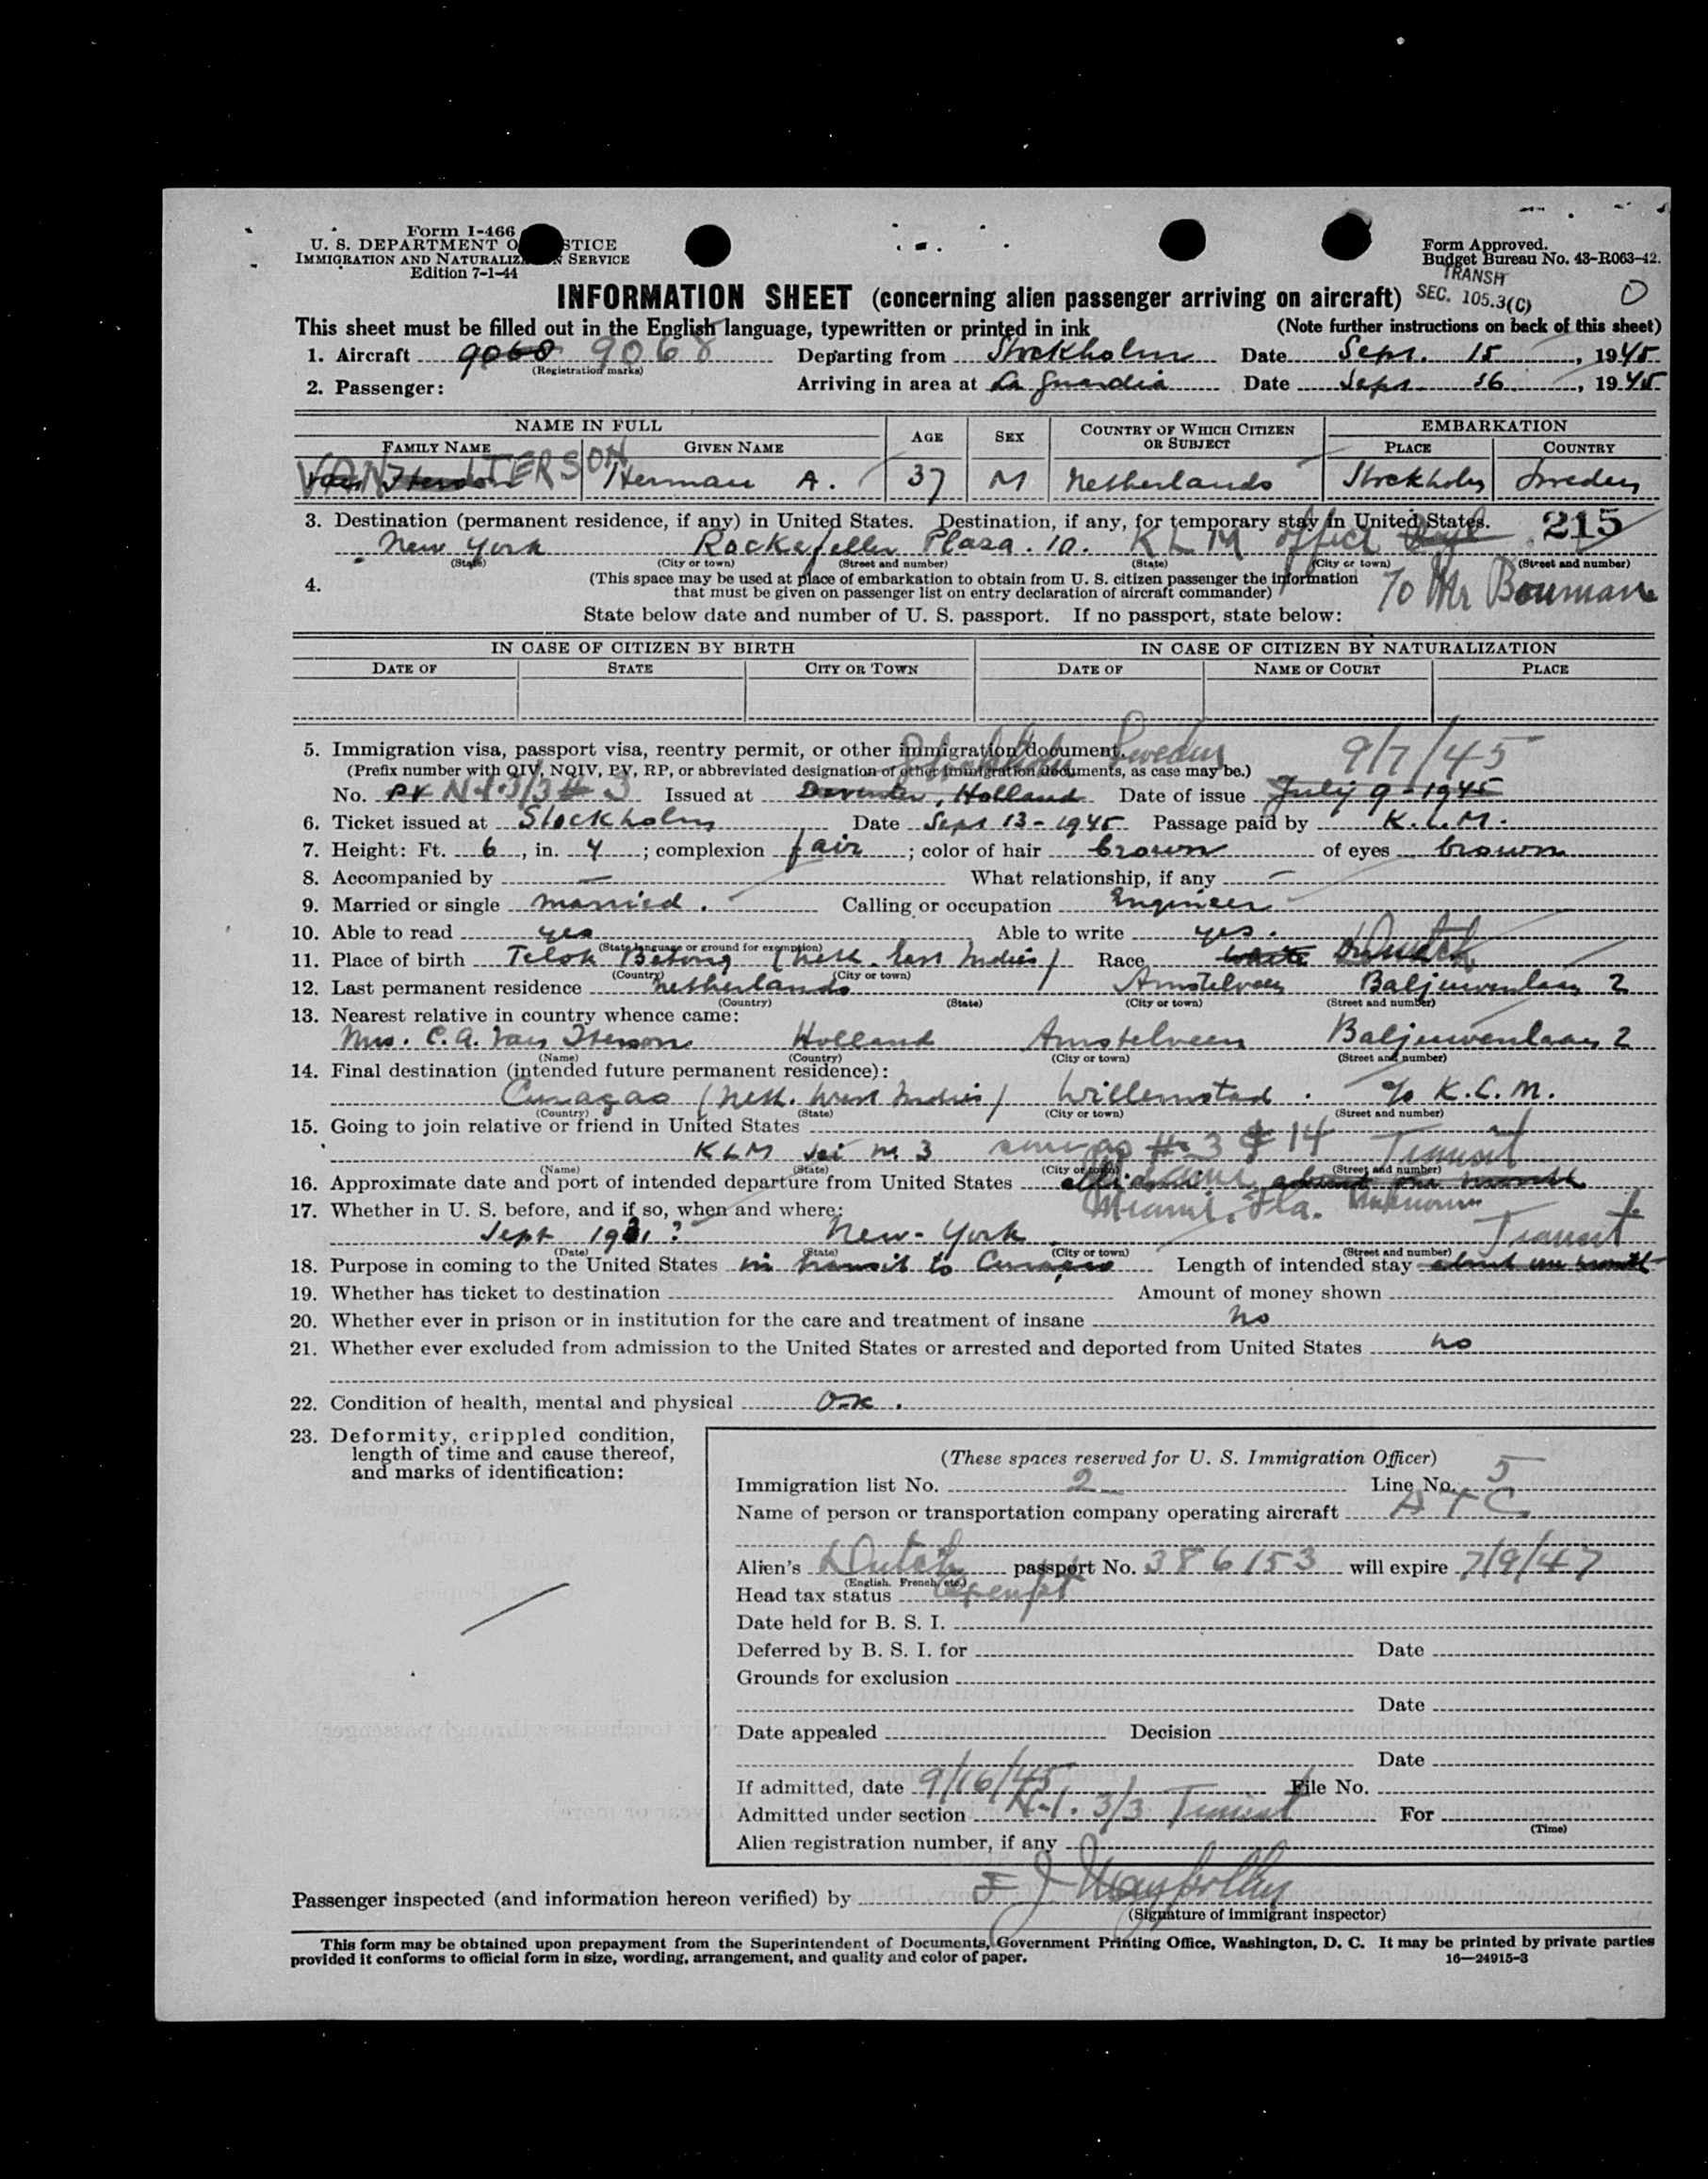 Form I-466
U. S. DEPARTMENT O STICE
IMMIGRATION AND NATURALIZ N SERVICE
Edition 7-1-44
Form Approved.
Budget Bureau No. 43-R063-42.
TRANSIT
SEC. 105.3(C)
0
INFORMATION SHEET (concerning alien passenger arriving on aircraft)
This sheet must be filled out in the English language, typewritten or printed in ink (Note further instructions on back of this sheet)
1. Aircraft 9068 9068 Departing from Stockholm Date Sept. 15, 1945
(Registration marks)
2. Passenger: Arriving in area at La Guardia Date Sept 16, 1945
NAME IN FULL AGE SEX COUNTRY OF WHICH CITIZEN OR SUBJECT EMBARKATION
FAMILY NAME GIVEN NAME PLACE COUNTRY
VAN ITERSON Herman A. 37 M Netherlands Stockholm Sweden
3. Destination (permanent residence, if any) in United States. Destination, if any, for temporary stay in United States. 215
New York Rockefeller Plaza. 10. KLM office
(State) (City or town) (Street and number) (State) (City or town) (Street and number)
4. (This space may be used at place of embarkation to obtain from U. S. citizen passenger the information
that must be given on passenger list on entry declaration of aircraft commander)
To Mr Bouman
State below date and number of U. S. passport. If no passport, state below:
IN CASE OF CITIZEN BY BIRTH IN CASE OF CITIZEN BY NATURALIZATION
DATE OF STATE CITY OR TOWN DATE OF NAME OF COURT PLACE
5. Immigration visa, passport visa, reentry permit, or other immigration document.
Stockholm Sweden 9/7/45
(Prefix number with QIV, NQIV, PV, RP, or abbreviated designation of other immigration documents, as case may be.)
No. PV N-1-3/3 # 3 Issued at Deventer, Holland Date of issue July 9-1945
6. Ticket issued at Stockholm Date Sept 13-1945 Passage paid by K.L.M.
7. Height: Ft. 6, in. 4; complexion fair; color of hair brown of eyes brown
8. Accompanied by — What relationship, if any —
9. Married or single married. Calling or occupation Engineer
10. Able to read yes Able to write yes.
(State language or ground for exemption)
11. Place of birth Telok Betong (Neth. East Indies) Race White Dutch
(Country) (City or town)
12. Last permanent residence Netherlands Amstelveen Baljuwenlaan 2
(Country) (State) (City or town) (Street and number)
13. Nearest relative in country whence came:
Mrs. C.A. Van Iterson Holland Amstelveen Baljuwenlaan 2
(Name) (Country) (City or town) (Street and number)
14. Final destination (intended future permanent residence):
Curaçao (Neth. West Indies) Willemstad. c/o K.L.M.
(Country) (State) (City or town) (Street and number)
15. Going to join relative or friend in United States
KLM m 3 same as # 3 & 14 Transit
(Name) (State) (City or town) (Street and number)
16. Approximate date and port of intended departure from United States about one month
Miami, Fla. Unknown
17. Whether in U. S. before, and if so, when and where:
Sept 1931? New-York Transit
(Date) (State) (City or town) (Street and number)
18. Purpose in coming to the United States in transit to Curaçao Length of intended stay about one month
19. Whether has ticket to destination Amount of money shown
20. Whether ever in prison or in institution for the care and treatment of insane no
21. Whether ever excluded from admission to the United States or arrested and deported from United States no
22. Condition of health, mental and physical O.K.
23. Deformity, crippled condition,
length of time and cause thereof,
and marks of identification:
(These spaces reserved for U. S. Immigration Officer)
Immigration list No. 2 Line No. 5
Name of person or transportation company operating aircraft ATC
Alien's Dutch passport No. 386153 will expire 7/9/47
(English, French, etc.)
Head tax status Exempt
Date held for B. S. I.
Deferred by B. S. I. for Date
Grounds for exclusion
Date
Date appealed Decision
Date
If admitted, date 9/16/45 File No.
Admitted under section N-1. 3/3 Transit For
(Time)
Alien registration number, if any
Passenger inspected (and information hereon verified) by
(Signature of immigrant inspector)
This form may be obtained upon prepayment from the Superintendent of Documents, Government Printing Office, Washington, D. C. It may be printed by private parties
provided it conforms to official form in size, wording, arrangement, and quality and color of paper. 16—24915-3